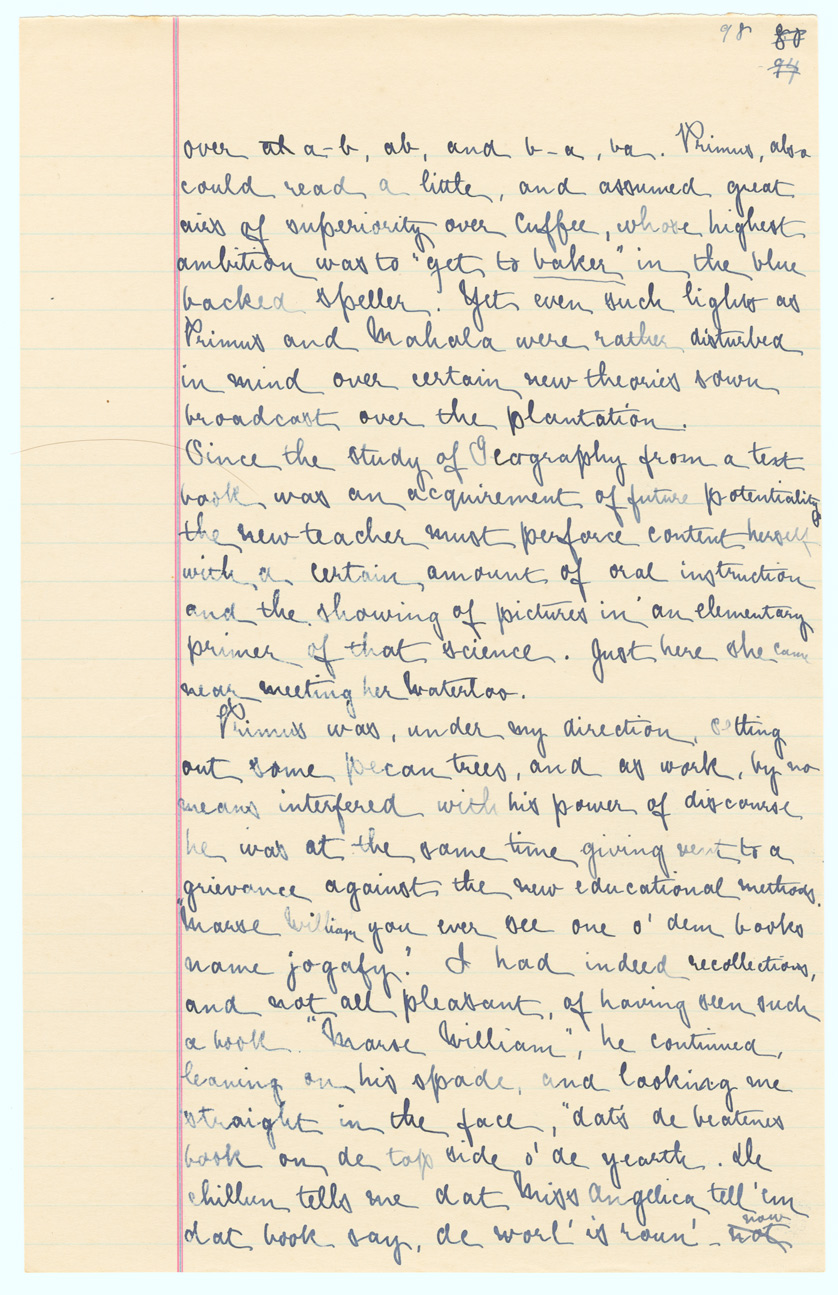 98 88
94
over at a-b, ab, and b-a, ba. Primus, also
could read a little, and assumed great
airs of superiority over Cuffee, whose highest
ambition was to "get to baker" in the blue
backed speller. Yet even such lights as
Primus and Mahala were rather disturbed
in mind over certain new theories sown
broadcast over the plantation.
Since the study of Geography from a text
book was an acquirement of future potentiality,
the new teacher must perforce content herself
with a certain amount of oral instruction
and the showing of pictures in an elementary
primer of that science. Just here she came
near meeting her Waterloo.
Primus was, under my direction, setting
out some pecan trees, and as work, by no
means interfered with his power of discourse
he was at the same time giving vent to a
grievance against the new educational methods.
"Marse William you ever see one o' dem books
name jogafy?" I had indeed recollections,
and not all pleasant, of having seen such
a book. "Marse William", he continued,
leaning on his spade, and looking me
straight in the face, "dat's de beatenes
book on de top side o' de yearth. De
chillun tells me dat Miss Angelica tell 'em
dat book say, de worl' is roun' - not now